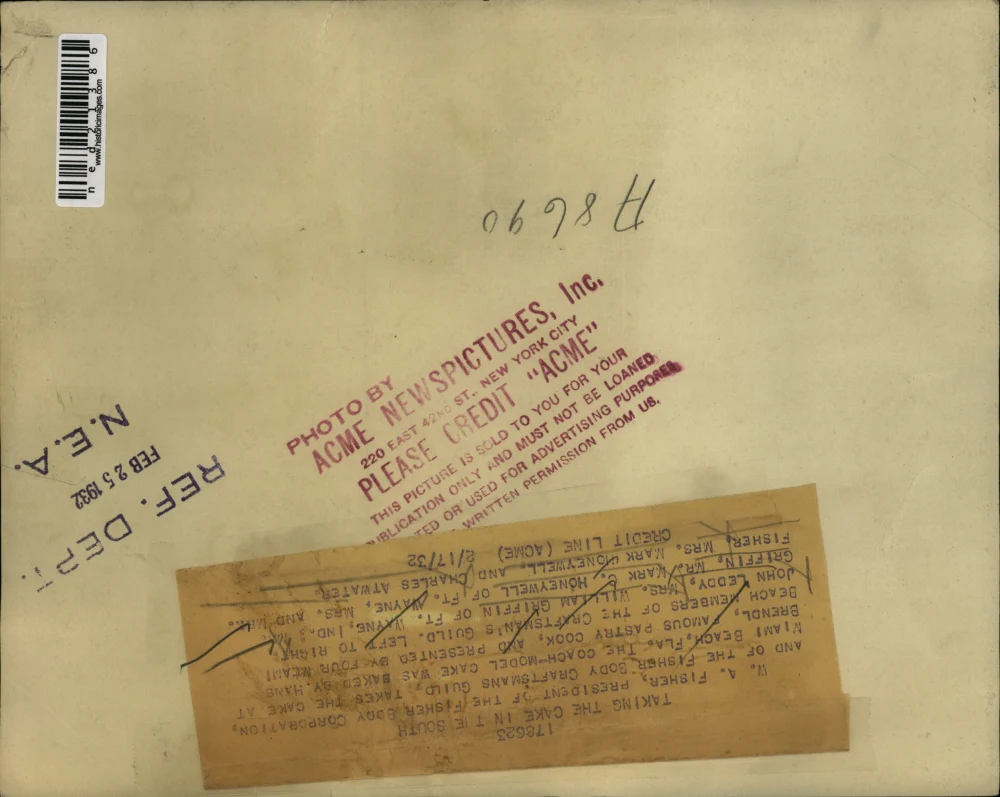 ned21386
www.historicimages.com
A8690
PHOTO BY
ACME NEWSPICTURES, Inc.
220 EAST 42ND ST., NEW YORK CITY
PLEASE CREDIT "ACME"
THIS PICTURE IS SOLD TO YOU FOR YOUR
PUBLICATION ONLY AND MUST NOT BE LOANED
OR USED FOR ADVERTISING PURPOSES
WRITTEN PERMISSION FROM US.
REF. DEPT.
FEB 25 1932
N.E.A.
178623
TAKING THE CAKE IN THE SOUTH
W. A. FISHER, PRESIDENT OF THE FISHER BODY CORPORATION,
AND OF THE FISHER BODY CRAFTSMANS GUILD, TAKES THE CAKE AT
MIAMI BEACH, FLA. THE COACH-MODEL CAKE WAS BAKED BY HANS
BRENDL, FAMOUS PASTRY COOK, AND PRESENTED BY FOUR MIAMI
BEACH MEMBERS OF THE CRAFTSMAN'S GUILD. LEFT TO RIGHT,
JOHN LEDDY, MRS. WILLIAM GRIFFIN OF FT. WAYNE, IND.,
GRIFFIN, MR. MARK C. HONEYWELL OF FT. WAYNE, MRS. AND MR.
FISHER, MRS. MARK HONEYWELL, AND CHARLES ATWATER
CREDIT LINE (ACME) 2/17/32